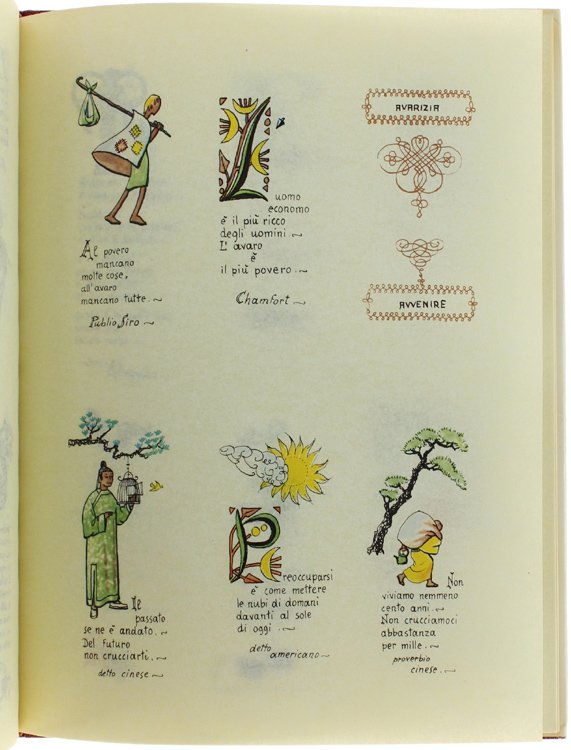 Al povero
mancano
molte cose,
all'avaro
mancano tutte.
Publio Siro
L'uomo
economo
è il più ricco
degli uomini.
L'avaro
è
il più povero.
Chamfort
AVARIZIA
AVVENIRE
Il
passato
se ne è andato.
Del futuro
non crucciarti.
detto cinese
Preoccuparsi
è come mettere
le nubi di domani
davanti al sole
di oggi.
detto
americano
Non
viviamo nemmeno
cento anni.
Non crucciamoci
abbastanza
per mille.
proverbio
cinese.